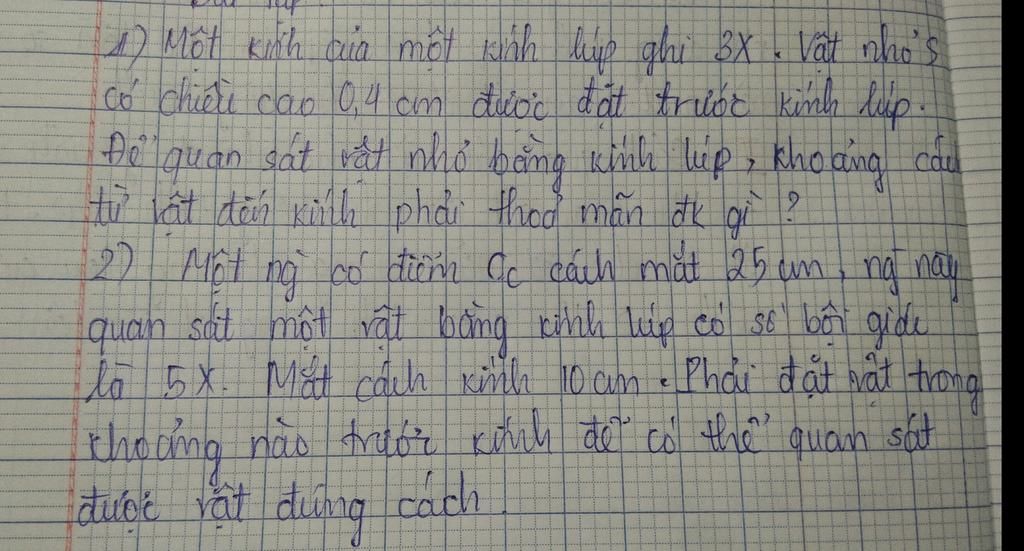 1) Một kính của một kính lúp ghi 3X. Vật nhỏ S
có chiều cao 0,4 cm được đặt trước kính lúp.
Để quan sát vật nhỏ bằng kính lúp, khoảng cách
từ vật đến kính phải thoả mãn đk gì?
2) Một ng có điểm Cc cách mắt 25 cm, ng này
quan sát một vật bằng kính lúp có số bội giác
là 5X. Mắt cách kính 10 cm. Phải đặt vật trong
khoảng nào trước kính để có thể quan sát
được vật đúng cách.